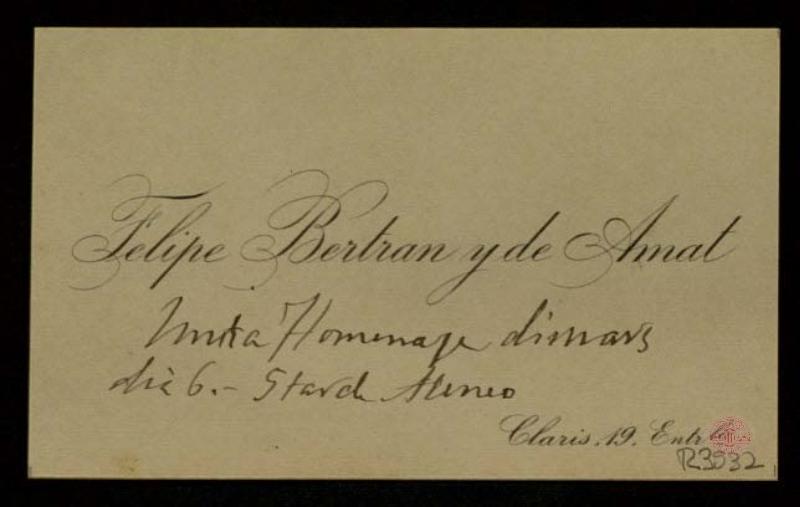 Felipe Bertran y de Amat
Junta Homenage dimars
dia 6.- 5 tarde Ateneo
Claris, 19. Entr
R3532